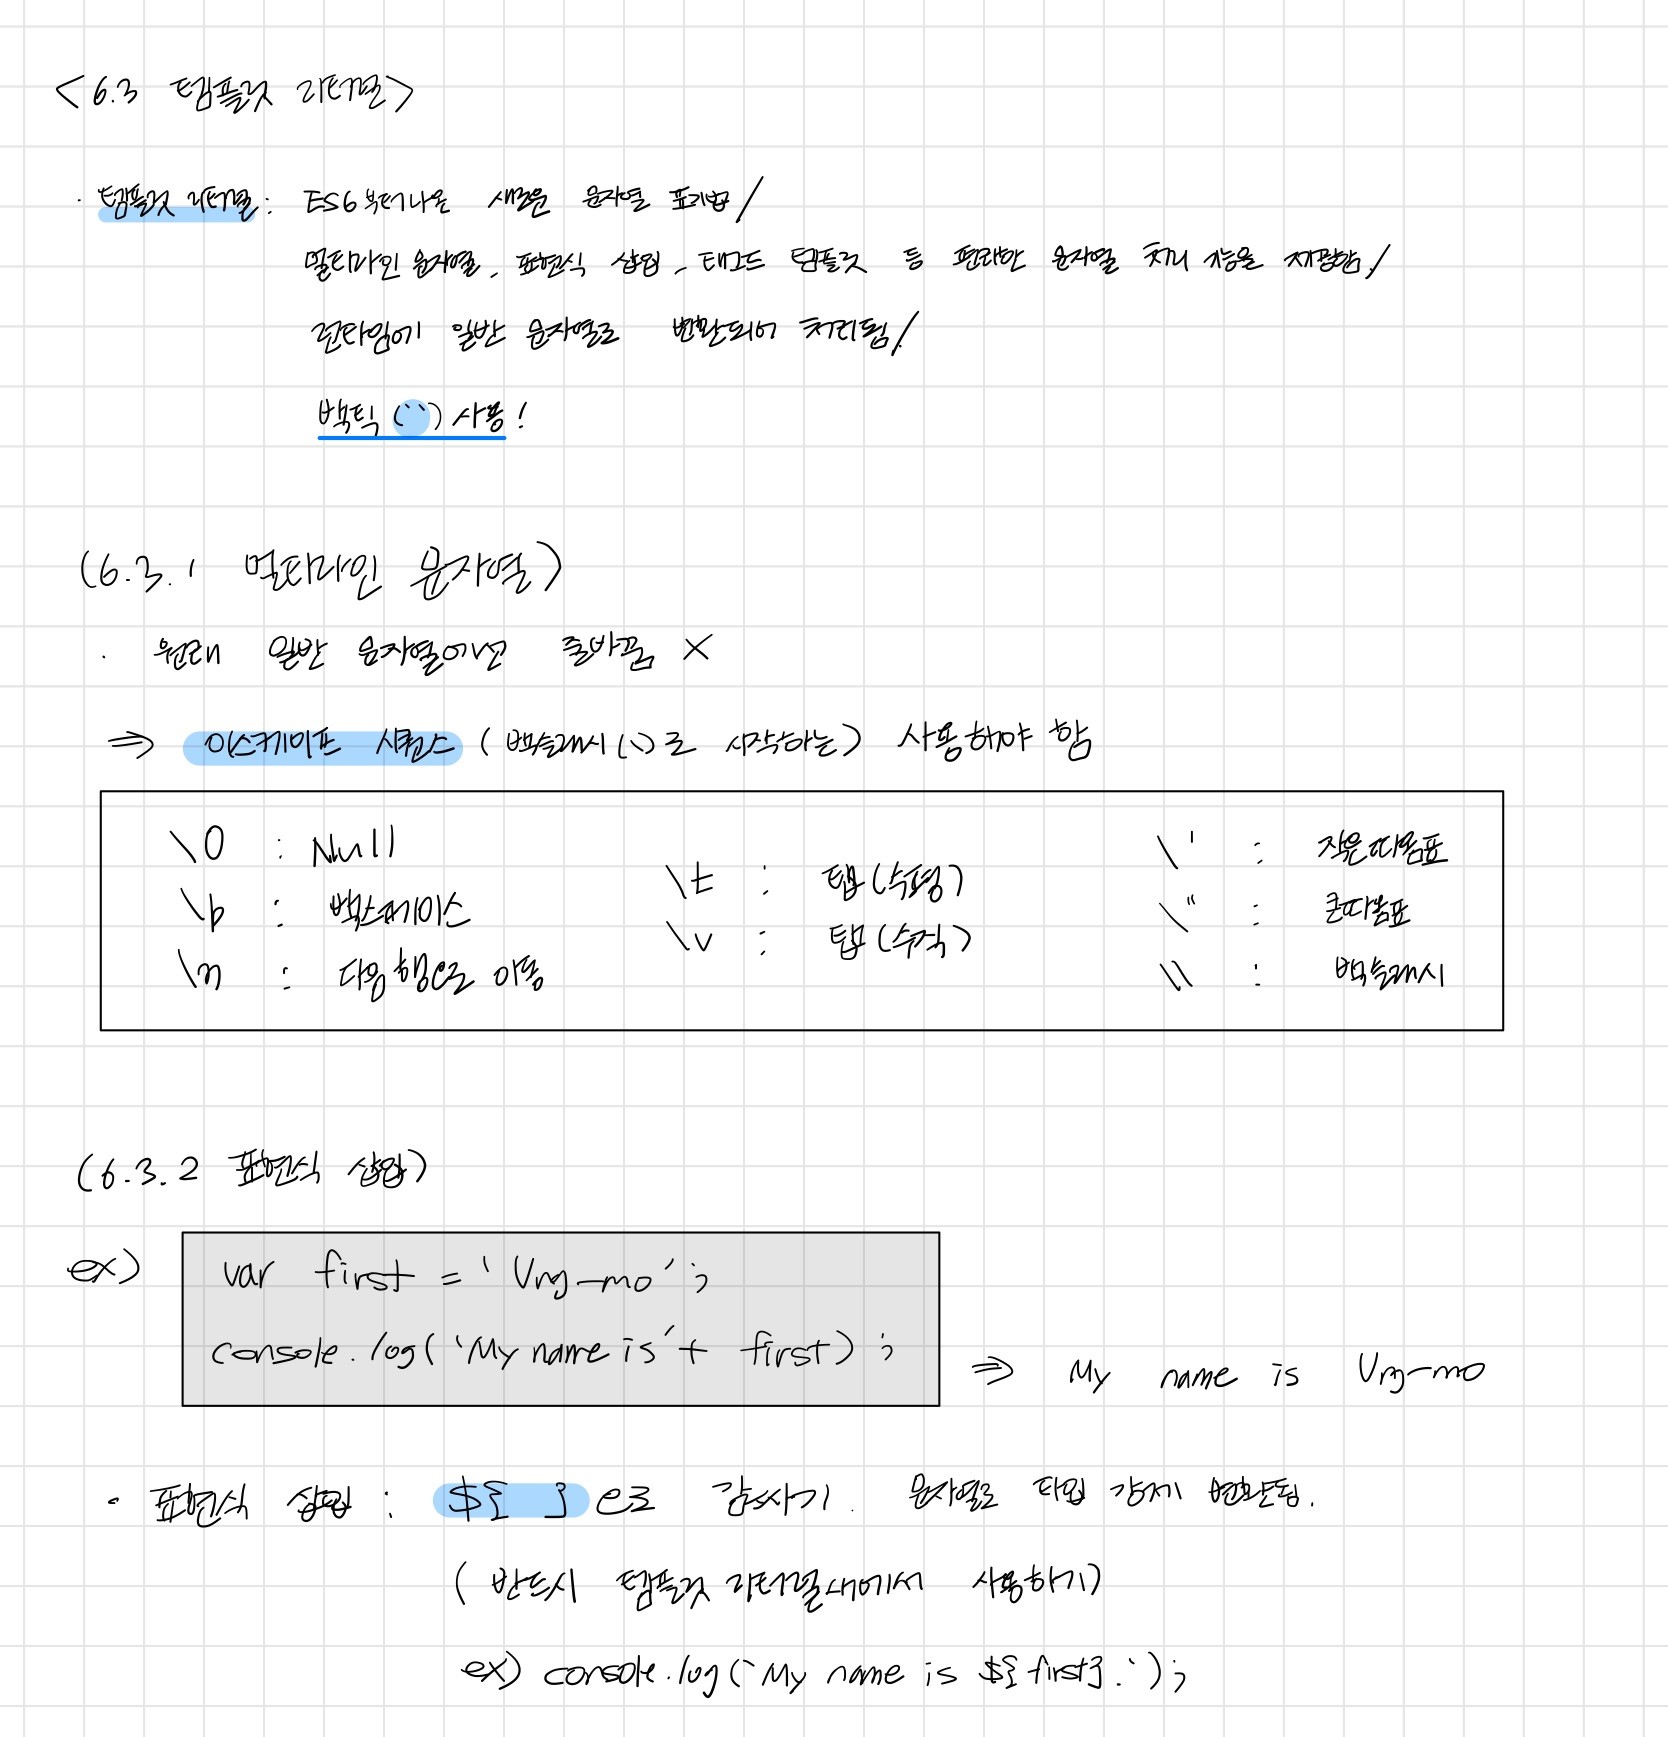 <6.3 템플릿 리터럴>
· 템플릿 리터럴 : ES6부터 나온 새로운 문자열 표기법 /
멀티라인 문자열, 표현식 삽입, 태그드 템플릿 등 편리한 문자열 처리 기능을 제공함 /
런타임에 일반 문자열로 변환되어 처리됨 /
백틱(``) 사용!
(6.3.1 멀티라인 문자열)
· 원래 일반 문자열에선 줄바꿈 X
⇒ 이스케이프 시퀀스 (백슬래시(\)로 시작하는) 사용해야 함
\0 : Null
\b : 백스페이스
\n : 다음 행으로 이동
\t : 탭(수평)
\v : 탭(수직)
\' : 작은따옴표
\" : 큰따옴표
\\ : 백슬래시
(6.3.2 표현식 삽입)
ex)
var first = 'Ung-mo';
console.log('My name is' + first);
⇒ My name is Ung-mo
· 표현식 삽입 : ${ }으로 감싸기. 문자열로 타입 강제 변환됨.
(반드시 템플릿 리터럴 내에서 사용하기)
ex) console.log(`My name is ${first}.`);